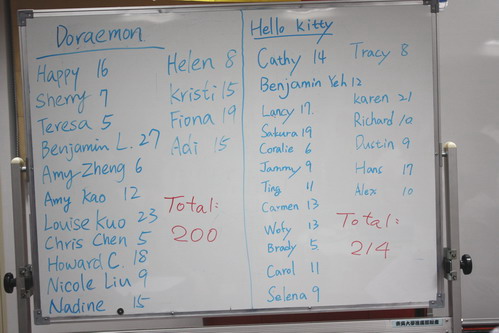 Doraemon
Happy 16
Sherry 7
Teresa 5
Benjamin L. 27
Amy Zheng 6
Amy Kao 12
Louise Kuo 23
Chris Chen 5
Howard C. 18
Nicole Liu 9
Nadine 15
Helen 8
Kristi 15
Fiona 19
Adi 15
Total:
200
Hello Kitty
Cathy 14
Benjamin Yeh 12
Lancy 17.
Sakura 19
Coralie 6
Jammy 9
Ting 11
Carmen 13
Wefy 13
Brady 5
Carol 11
Selena 9
Tracy 8
Karen 21
Richard 10
Dustin 9
Hans 17
Alex 10
Total:
214